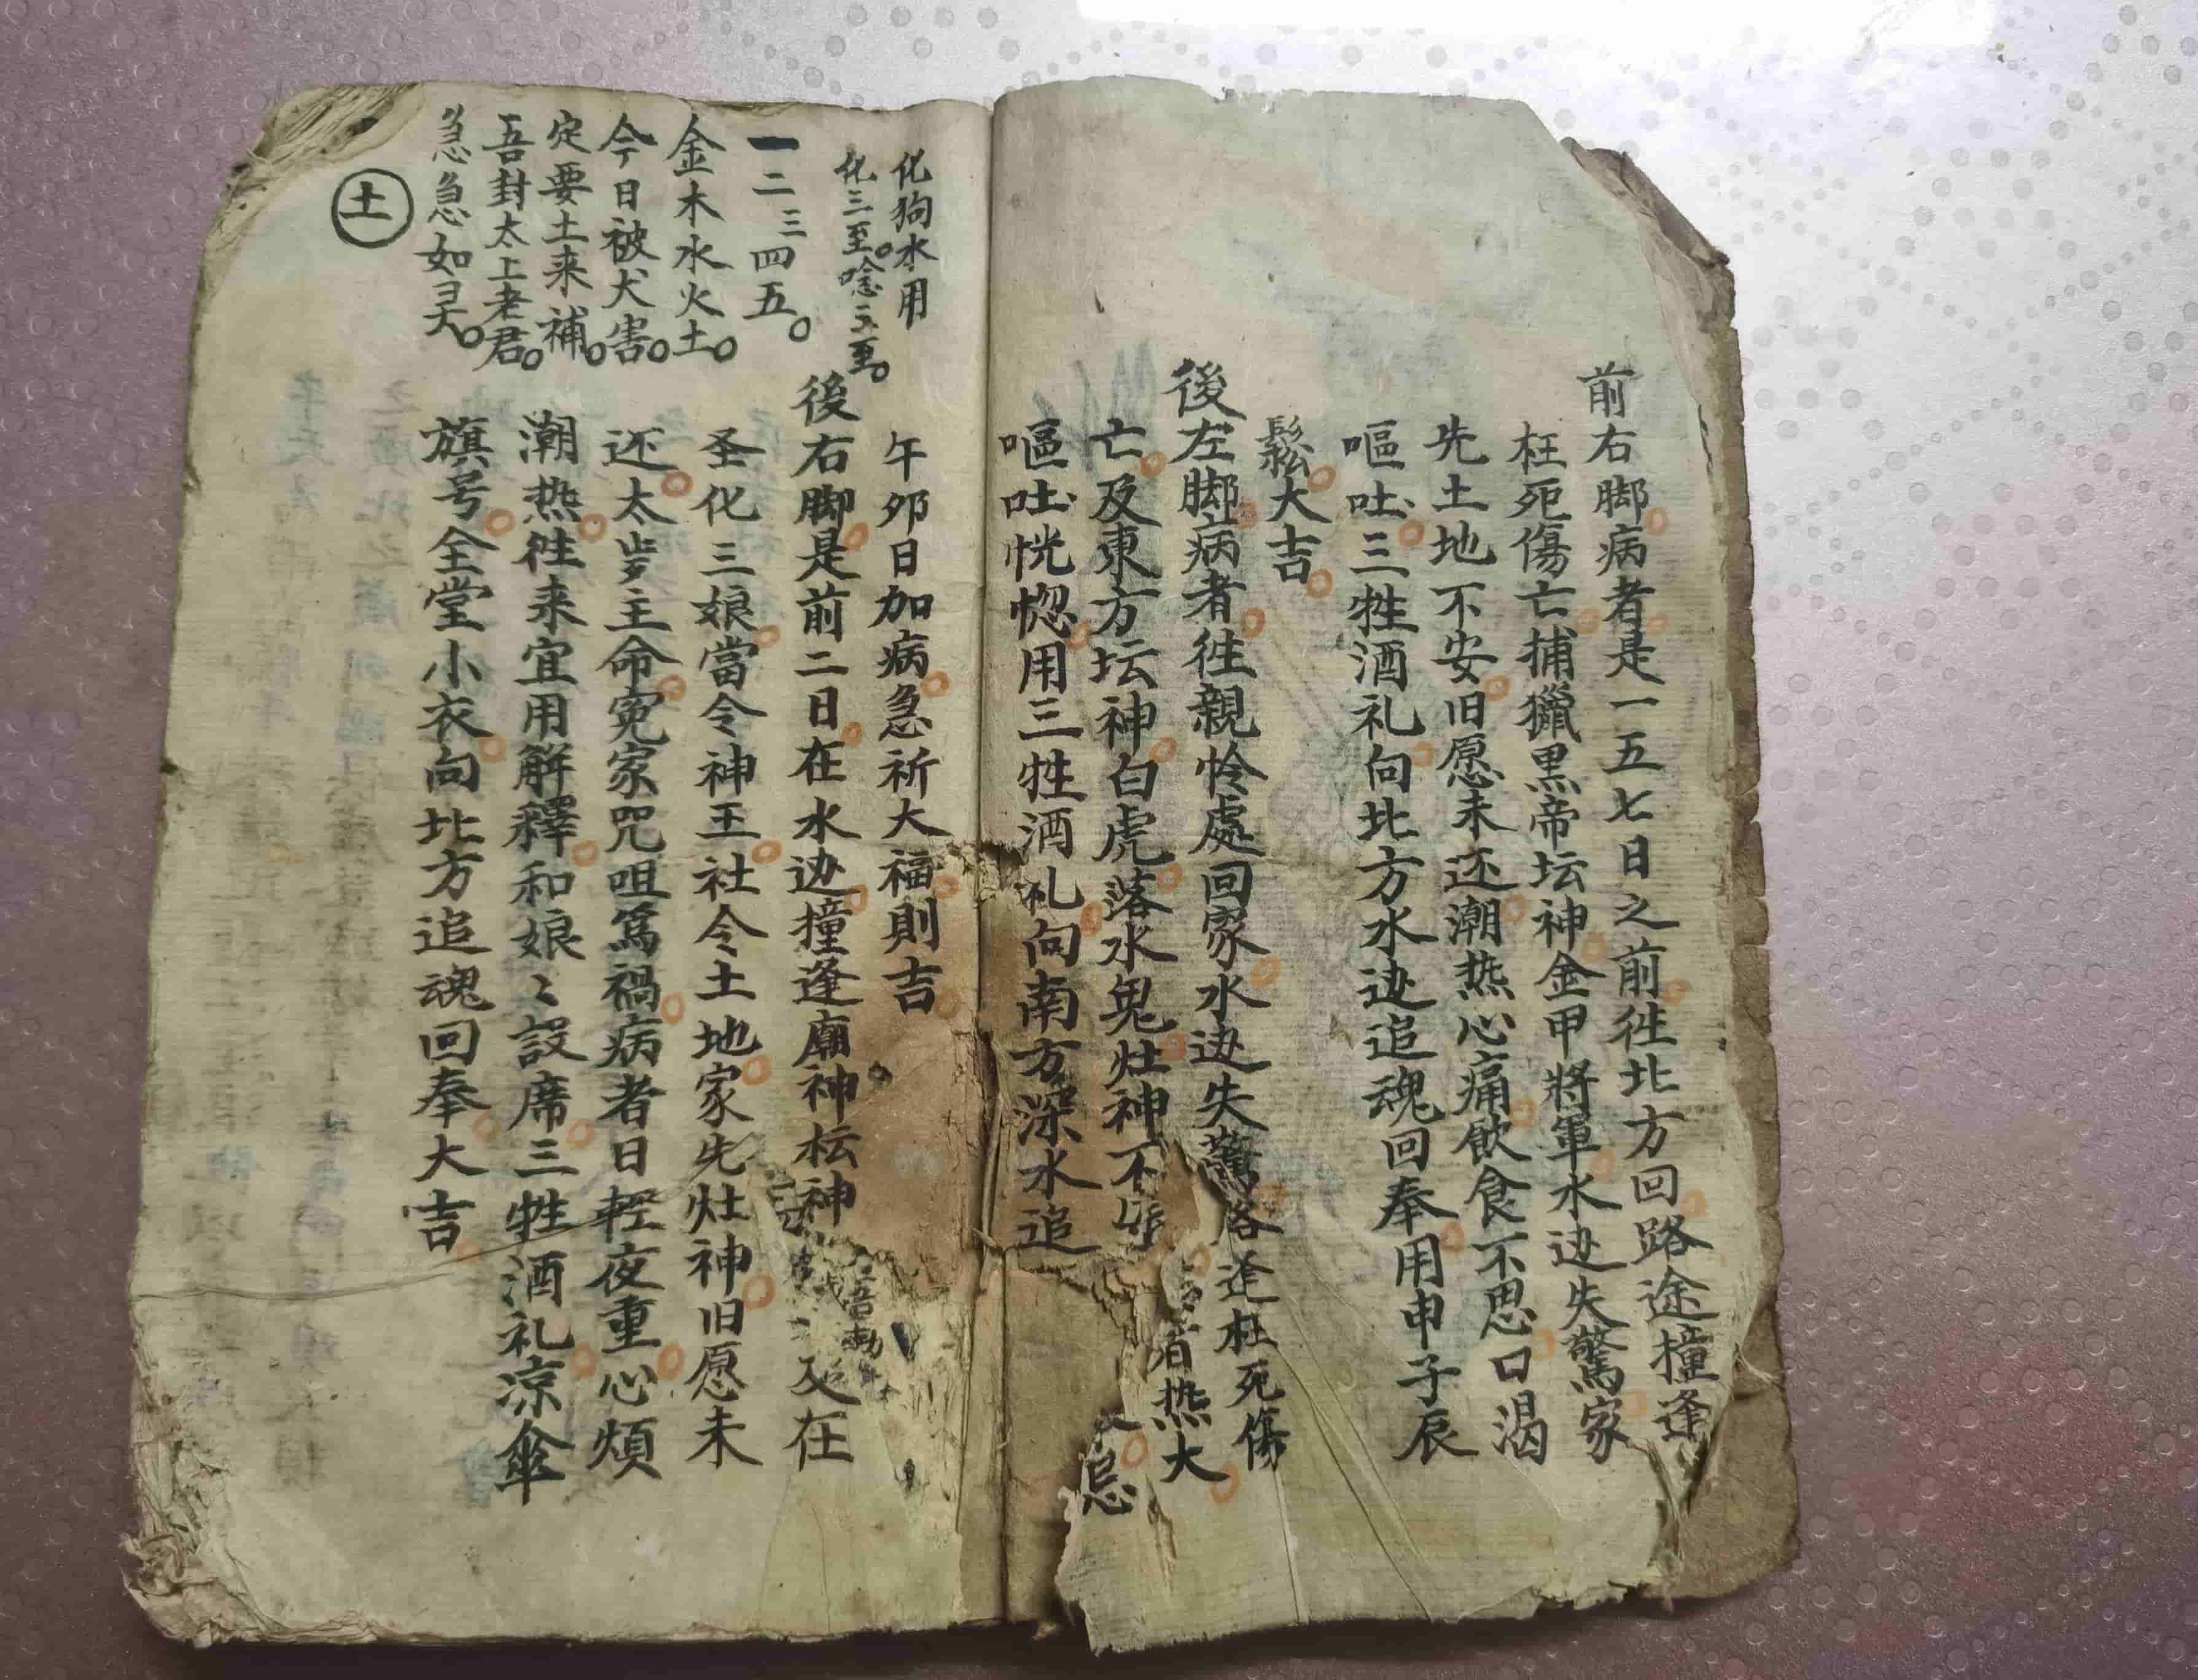 前右脚病者是一五七日之前往北方回路途撞逢
枉死傷亡捕獵黑帝坛神金甲將軍水边失驚家
先土地不安旧愿未还潮热心痛飲食不思口渴
嘔吐三牲酒礼向北方水边追魂回奉用申子辰
鬆大吉
後左脚病者往親怜處回家水边失驚路逢枉死傷
亡及東方坛神白虎落水鬼灶神不 者热大
嘔吐恍惚用三牲酒礼向南方深水追
化狗水用
化三至唸五至
一二三四五
金木水火土
今日被犬害
定要土来補
吾封太上老君
急急如灵
土
午夘日加病急祈大福則吉
後右脚是前二日在水边撞逢廟神坛神 又在
圣化三娘當令神王社令土地家先灶神旧愿未
还太岁主命寃家咒咀為禍病者日輕夜重心煩
潮热往来宜用解釋和娘〻設席三牲酒礼凉傘
旗号全堂小衣向北方追魂回奉大吉